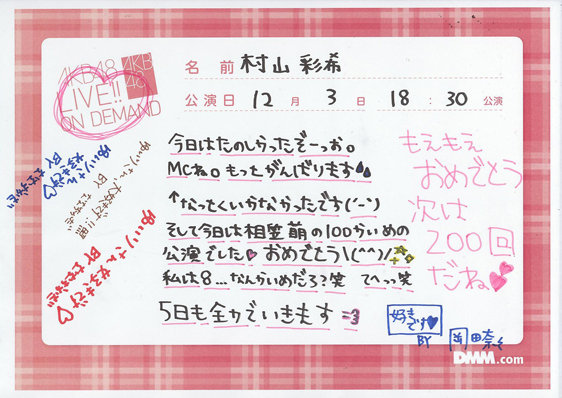 AKB48
LIVE!!
ON DEMAND
AKB
48
名前 村山 彩希
公演日 12 月 3 日 18 : 30 公演
今日はたのしらったぞーっお。
MCね。もっとがんばります
↑なってくいかなかったです(´-`)
そして今日は相笠萌の100かいめの
公演でした♡おめでとう\(^^)/
私は8...なんかいめだろ?笑 てへっっ笑
5日も全力でいきます =3
もえもえ
おめでとう
次は
200回
だね
ゆいりさん
大好きです!!
BY
ゆいりさん
好きです♡
BY
好き
です♥
BY 岡田奈々
DMM.com